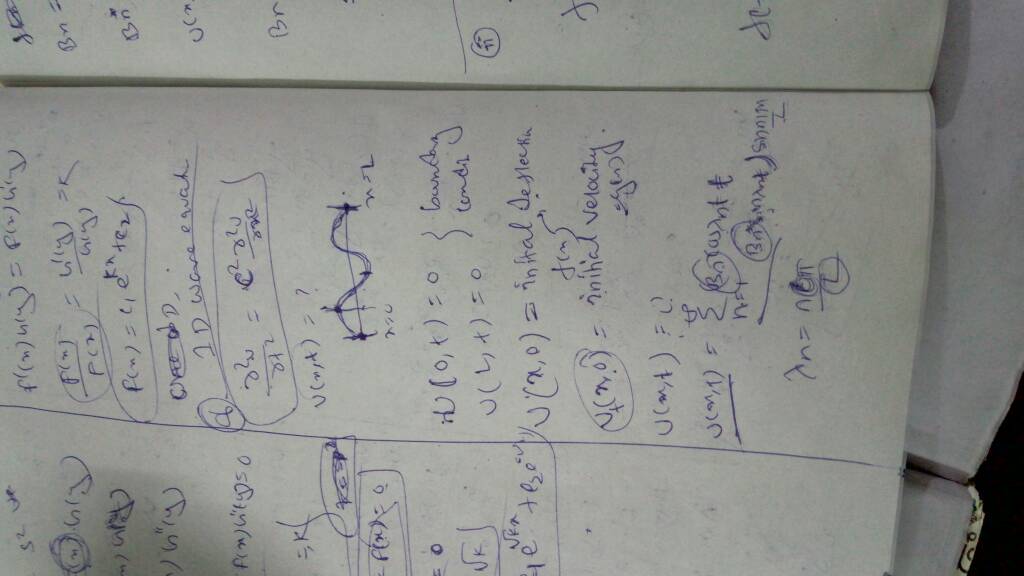 s²
(x) G(y)
) G(y)
) G"(y)
F(x) G"(y) = 0
= K
F(x) = 0
= 0
√K
c₁ e^√Kx + c₂ e
F'(x) G(y) = F(x) G'(y)
F'(x)/F(x) = G'(y)/G(y) = K
F(x) = c₁ e^Kx + c₂
1D wave equat
∂²u/∂t² = c² ∂²u/∂x²
u(x,t) = ?
x=0
x=L
u(0,t) = 0 } boundary
u(L,t) = 0 condi
u(x,0) = initial deflection
f(x)
u_t(x,0) = initial velocity
= g(x)
u(x,t) = ?
u(x,t) = ∞ Σ n=1 (Bn cos λn t +
Bn* sin λn t) sin nπx/L
λn = ncπ/L
Bn =
Bn*
u(x,
Bn
(ii)